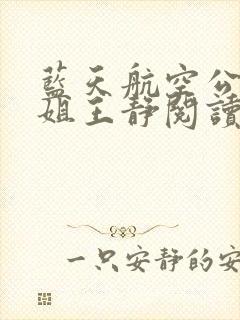 藍天航空公
姐王静閱讀
一只安静的安